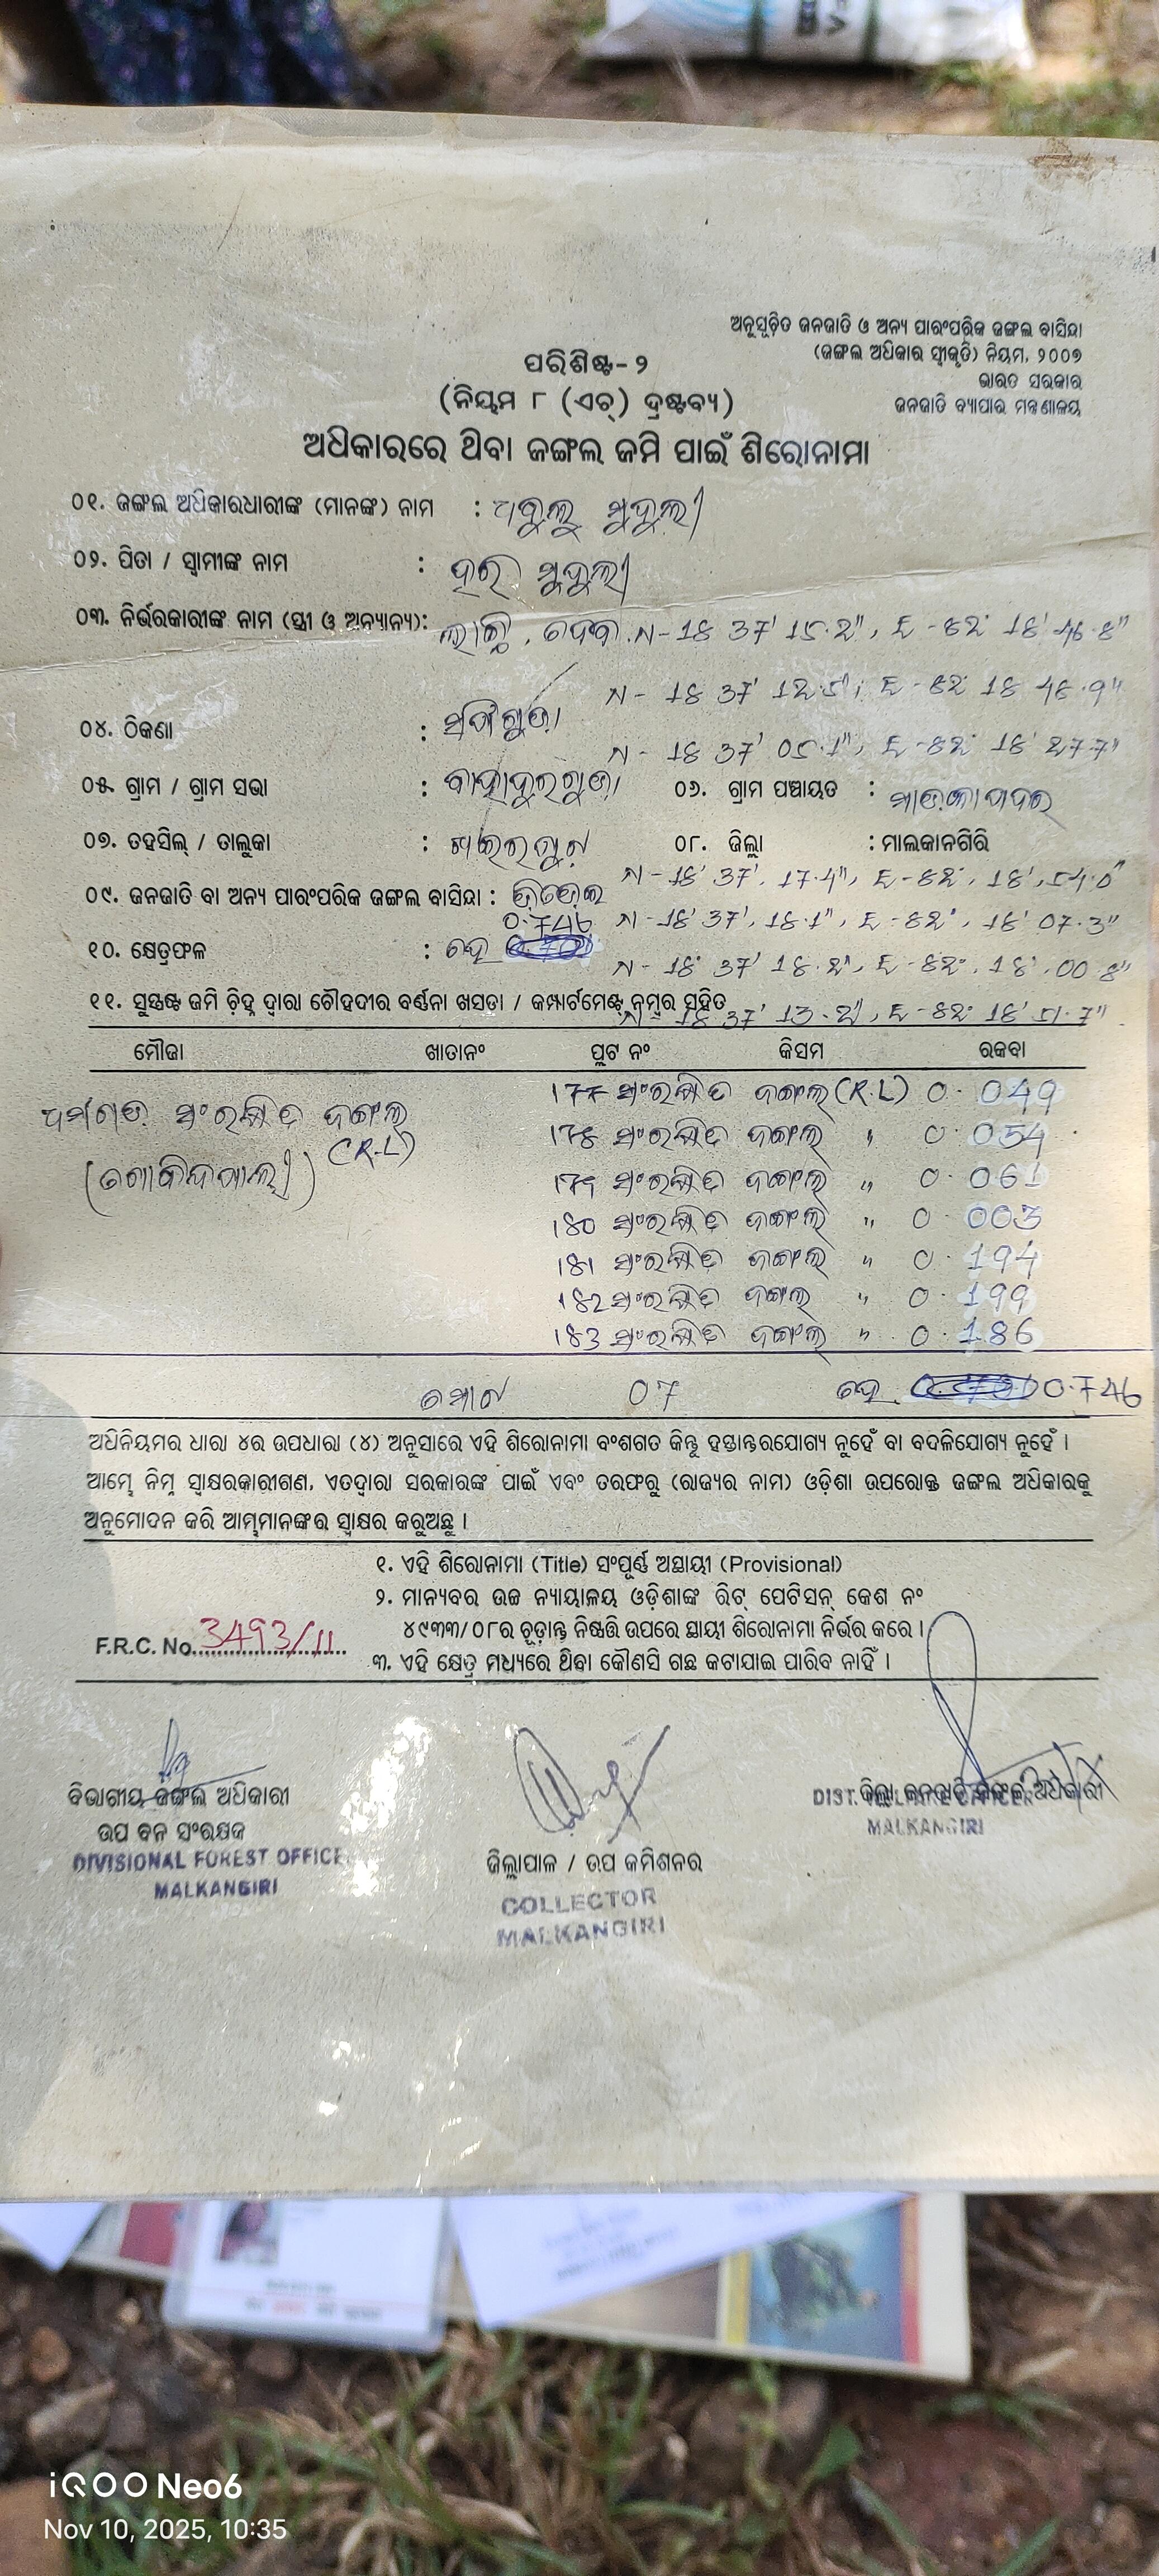 ଅନୁସୂଚିତ ଜନଜାତି ଓ ଅନ୍ୟ ପାରଂପରିକ ଜଙ୍ଗଲ ବାସିନ୍ଦା
(ଜଙ୍ଗଲ ଅଧିକାର ସ୍ୱୀକୃତି) ନିୟମ, ୨୦୦୭
ଭାରତ ସରକାର
ଜନଜାତି ବ୍ୟାପାର ମନ୍ତ୍ରଣାଳୟ
ପରିଶିଷ୍ଟ-୨
(ନିୟମ ୮ (ଏଚ୍) ଦ୍ରଷ୍ଟବ୍ୟ)
ଅଧିକାରରେ ଥିବା ଜଙ୍ଗଲ ଜମି ପାଇଁ ଶିରୋନାମା
୦୧. ଜଙ୍ଗଲ ଅଧିକାରଧାରୀଙ୍କ (ମାନଙ୍କ) ନାମ : ମୁଦୁଲୀ
୦୨. ପିତା / ସ୍ୱାମୀଙ୍କ ନାମ : ହରି ମୁଦୁଲୀ
୦୩. ନିର୍ଭରକାରୀଙ୍କ ନାମ (ସ୍ତ୍ରୀ ଓ ଅନ୍ୟାନ୍ୟ): N-18 37' 15.2", E-82° 18' 46.8"
N- 18 37' 12.5", E-82° 18 48.9"
୦୪. ଠିକଣା :
N- 18 37' 05.1", E-82° 18' 27.7"
୦୫. ଗ୍ରାମ / ଗ୍ରାମ ସଭା : ବାହାଦୁରଗୁଡ଼ା ୦୬. ଗ୍ରାମ ପଞ୍ଚାୟତ :
୦୭. ତହସିଲ୍ / ତାଲୁକା : ଖଇରଗୁଟ ୦୮. ଜିଲ୍ଲା : ମାଲକାନଗିରି
N-18° 37', 17.4", E-82°, 18', 54.0"
୦୯. ଜନଜାତି ବା ଅନ୍ୟ ପାରଂପରିକ ଜଙ୍ଗଲ ବାସିନ୍ଦା :
0.746 N-18° 37', 18.1", E-82°, 18' 07.3"
୧୦. କ୍ଷେତ୍ରଫଳ : ହେ
N-18° 37' 18.2", E-82°, 18', 00.8"
୧୧. ସୁସ୍ପଷ୍ଟ ଜମି ଚିହ୍ନ ଦ୍ୱାରା ଚୌହଦୀର ବର୍ଣ୍ଣନା ଖସଡା / କମ୍ପାର୍ଟମେଣ୍ଟ୍ ନମ୍ବର ସହିତ
N- 18 37' 13.2", E-82° 18' 51.7"
ମୌଜା ଖାତାନଂ ପ୍ଲଟ ନଂ କିସମ ରକବା
177 ସଂରକ୍ଷିତ ଜଙ୍ଗଲ (R.L) 0.049
ସଂରକ୍ଷିତ ଜଙ୍ଗଲ
(R.L)
178 ସଂରକ୍ଷିତ ଜଙ୍ଗଲ " 0.054
(ଗୋବିନ୍ଦପାଲୀ)
179 ସଂରକ୍ଷିତ ଜଙ୍ଗଲ " 0.061
180 ସଂରକ୍ଷିତ ଜଙ୍ଗଲ " 0.003
181 ସଂରକ୍ଷିତ ଜଙ୍ଗଲ " 0.194
182 ସଂରକ୍ଷିତ ଜଙ୍ଗଲ " 0.199
183 ସଂରକ୍ଷିତ ଜଙ୍ଗଲ " 0.186
ମୋଟ 07 ହେ 0.746
ଅଧିନିୟମର ଧାରା ୪ର ଉପଧାରା (୪) ଅନୁସାରେ ଏହି ଶିରୋନାମା ବଂଶଗତ କିନ୍ତୁ ହସ୍ତାନ୍ତରଯୋଗ୍ୟ ନୁହେଁ ବା ବଦଳିଯୋଗ୍ୟ ନୁହେଁ ।
ଆମ୍ଭେ ନିମ୍ନ ସ୍ୱାକ୍ଷରକାରୀଗଣ, ଏତଦ୍ୱାରା ସରକାରଙ୍କ ପାଇଁ ଏବଂ ତରଫରୁ (ରାଜ୍ୟର ନାମ) ଓଡ଼ିଶା ଉପରୋକ୍ତ ଜଙ୍ଗଲ ଅଧିକାରକୁ
ଅନୁମୋଦନ କରି ଆମ୍ଭମାନଙ୍କର ସ୍ୱାକ୍ଷର କରୁଅଛୁ ।
୧. ଏହି ଶିରୋନାମା (Title) ସଂପୂର୍ଣ୍ଣ ଅସ୍ଥାୟୀ (Provisional)
୨. ମାନ୍ୟବର ଉଚ୍ଚ ନ୍ୟାୟାଳୟ ଓଡ଼ିଶାଙ୍କ ରିଟ୍ ପେଟିସନ୍ କେଶ ନଂ
୪୯୩୩/୦୮ର ଚୂଡ଼ାନ୍ତ ନିଷ୍ପତ୍ତି ଉପରେ ସ୍ଥାୟୀ ଶିରୋନାମା ନିର୍ଭର କରେ ।
F.R.C. No. 3493/11
୩. ଏହି କ୍ଷେତ୍ର ମଧ୍ୟରେ ଥିବା କୌଣସି ଗଛ କଟାଯାଇ ପାରିବ ନାହିଁ ।
ବିଭାଗୀୟ ଜଙ୍ଗଲ ଅଧିକାରୀ
ଉପ ବନ ସଂରକ୍ଷକ
DIVISIONAL FOREST OFFICE
MALKANGIRI
ଜିଲ୍ଲାପାଳ / ଉପ କମିଶନର
COLLECTOR
MALKANGIRI
ଜିଲ୍ଲା ଜନଜାତି ମଙ୍ଗଳ ଅଧିକାରୀ
DIST. WELFARE OFFICER
MALKANGIRI
iQOO Neo6
Nov 10, 2025, 10:35